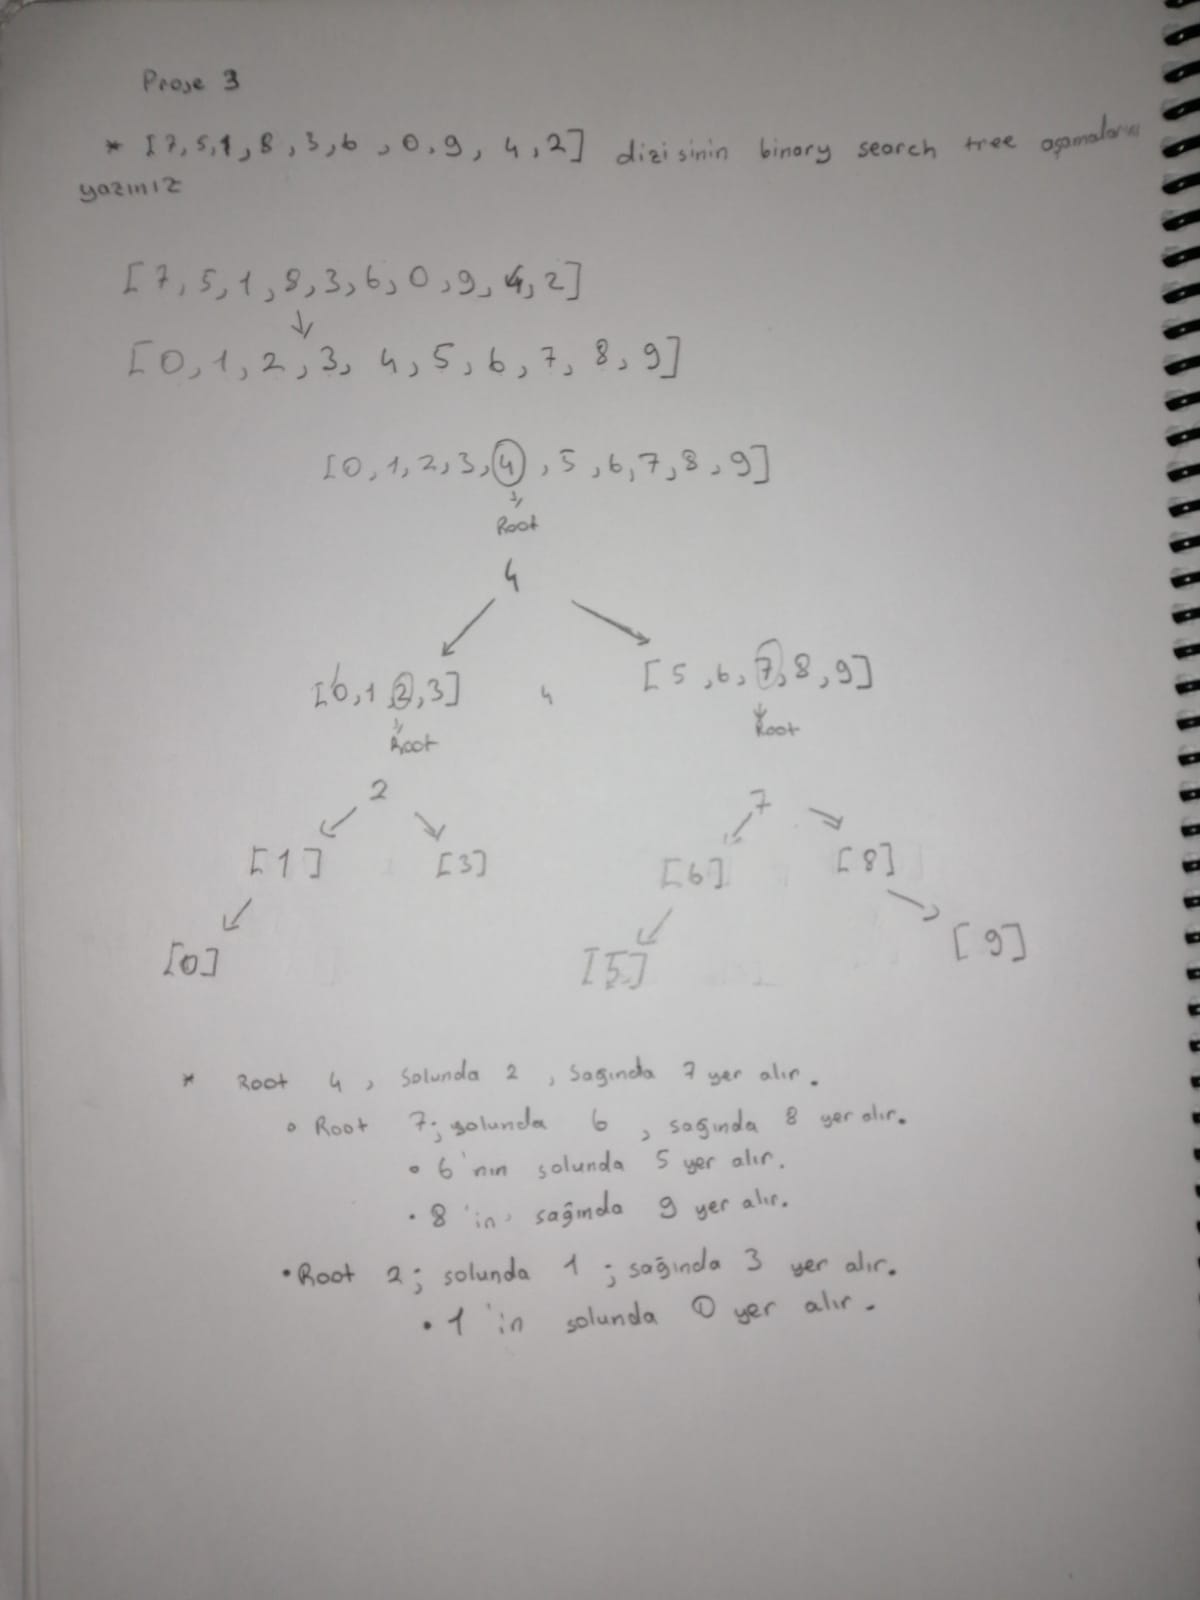 Proje 3
* [7,5,1,8,3,6,0,9,4,2] dizisinin binary search tree aşamalarını
yazınız
[7,5,1,8,3,6,0,9,4,2]
[0,1,2,3,4,5,6,7,8,9]
[0,1,2,3,4,5,6,7,8,9]
Root
4
[0,1,2,3] 4 [5,6,7,8,9]
Root Root
2 7
[1] [3] [6] [8]
[0] [5] [9]
* Root 4, solunda 2, sağında 7 yer alır.
• Root 7; solunda 6, sağında 8 yer alır.
• 6'nın solunda 5 yer alır.
• 8'in sağında 9 yer alır.
• Root 2; solunda 1; sağında 3 yer alır.
• 1'in solunda 0 yer alır.